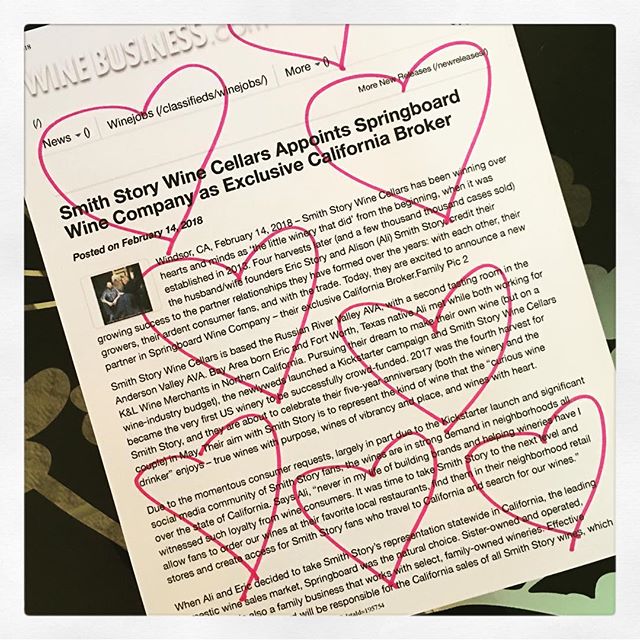 18
WINE BUSINESS.com
(/)
News ()
Winejobs (/classifieds/winejobs/)
More ()
More New Releases (/newreleases/)
Smith Story Wine Cellars Appoints Springboard
Wine Company as Exclusive California Broker
Posted on February 14, 2018
Windsor, CA, February 14, 2018 – Smith Story Wine Cellars has been winning over
hearts and minds as 'the little winery that did' from the beginning, when it was
established in 2013. Four harvests later (and a few thousand thousand cases sold)
the husband/wife founders Eric Story and Alison (Ali) Smith Story credit their
growing success to the partner relationships they have formed over the years: with each other, their
growers, their ardent consumer fans, and with the trade. Today, they are excited to announce a new
partner in Springboard Wine Company – their exclusive California Broker.Family Pic 2
Smith Story Wine Cellars is based the Russian River Valley AVA, with a second tasting room in the
Anderson Valley AVA. Bay Area born Eric and Fort Worth, Texas native Ali met while both working for
K&L Wine Merchants in Northern California. Pursuing their dream to make their own wine (but on a
wine-industry budget), the newlyweds launched a Kickstarter campaign and Smith Story Wine Cellars
became the very first US winery to be successfully crowd-funded. 2017 was the fourth harvest for
Smith Story, and they are about to celebrate their five-year anniversary (both the winery and the
couple) in May. Their aim with Smith Story is to represent the kind of wine that the "curious wine
drinker" enjoys – true wines with purpose, wines of vibrancy and place, and wines with heart.
Due to the momentous consumer requests, largely in part due to the Kickstarter launch and significant
social media community of Smith Story fans, the wines are in strong demand in neighborhoods all
over the state of California. Says Ali, "never in my life of building brands and helping wineries have I
witnessed such loyalty from wine consumers. It was time to take Smith Story to the next level and
allow fans to order our wines at their favorite local restaurants, find them in their neighborhood retail
stores and create access for Smith Story fans who travel to California and search for our wines."
When Ali and Eric decided to take Smith Story's representation statewide in California, the leading
domestic wine sales market, Springboard was the natural choice. Sister-owned and operated,
is also a family business that works with select, family-owned wineries. Effective
will be responsible for the California sales of all Smith Story wines, which